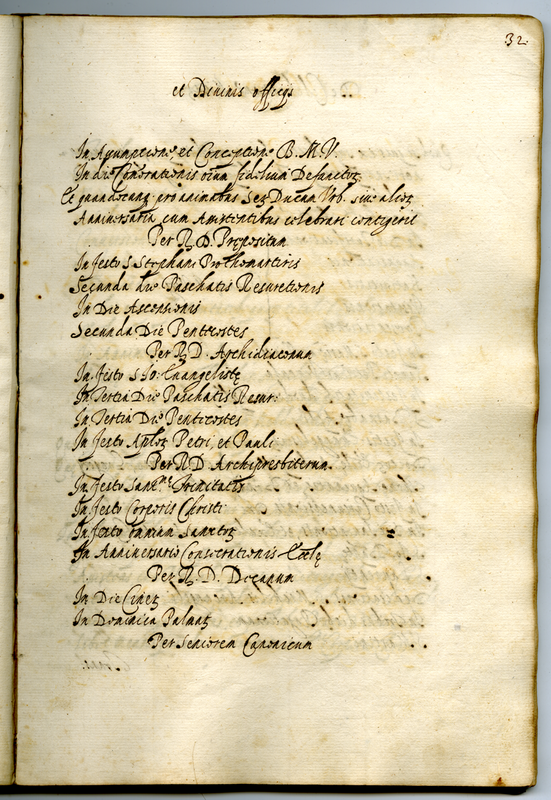 32.
et Diuinis officijs
In Assumptione et Conceptione B. M. V.
In die Com̃orationis oĩum fidelium Defunctoꝝ
Et quandocunq; pro animabus Ser. Ducum Vrb. siue alioꝝ
Anniuersaria cum Assistentibus celebrari contigerit
Per R. D. Prepositum
In festo S. Stephani Prothomartiris
Secunda die Paschatis Resuretionis
In Die Ascensionis
Secunda Die Penttecostes
Per R. D. Archidiaconum
In festo S. Io: Euangelistę
In Tertia Die Paschatis Resur:
In Tertia Die Pentecostes
In festo Aploꝝ Petri, et Pauli
Per R. D. Archipresbiterum
In festo Sanc.me Trinitatis
In festo Corporis Christi
In festo omnium Sanctoꝝ
In Anniuersario Consecrationis Eccłę
Per R. D. Decanum
In Die Cineꝝ
In Dominica Palmaꝝ
Per Seniorem Canonicum